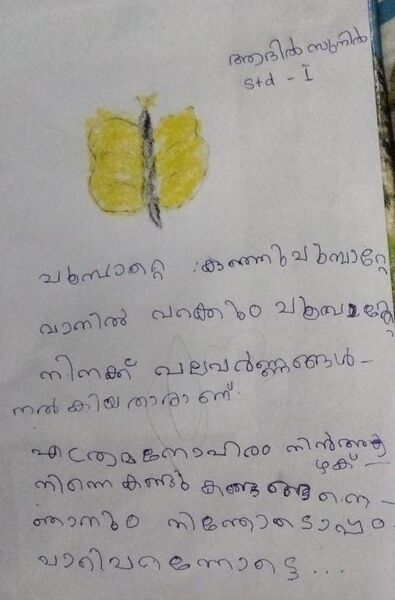 ആദിൽ സുനിൽ
Std - I
പൂമ്പാറ്റെ കുഞ്ഞുപൂമ്പാറ്റേ
വാനിൽ പറക്കും പൂമ്പാറ്റേ
നിനക്ക് പലവർണ്ണങ്ങൾ -
നൽകിയതാരാണ്
എത്രമനോഹരം നിൻഅഴക് -
നിന്നെ കണ്ടു
ഞാനും നിന്നോടൊപ്പം
പാറിപറന്നോട്ടെ ...